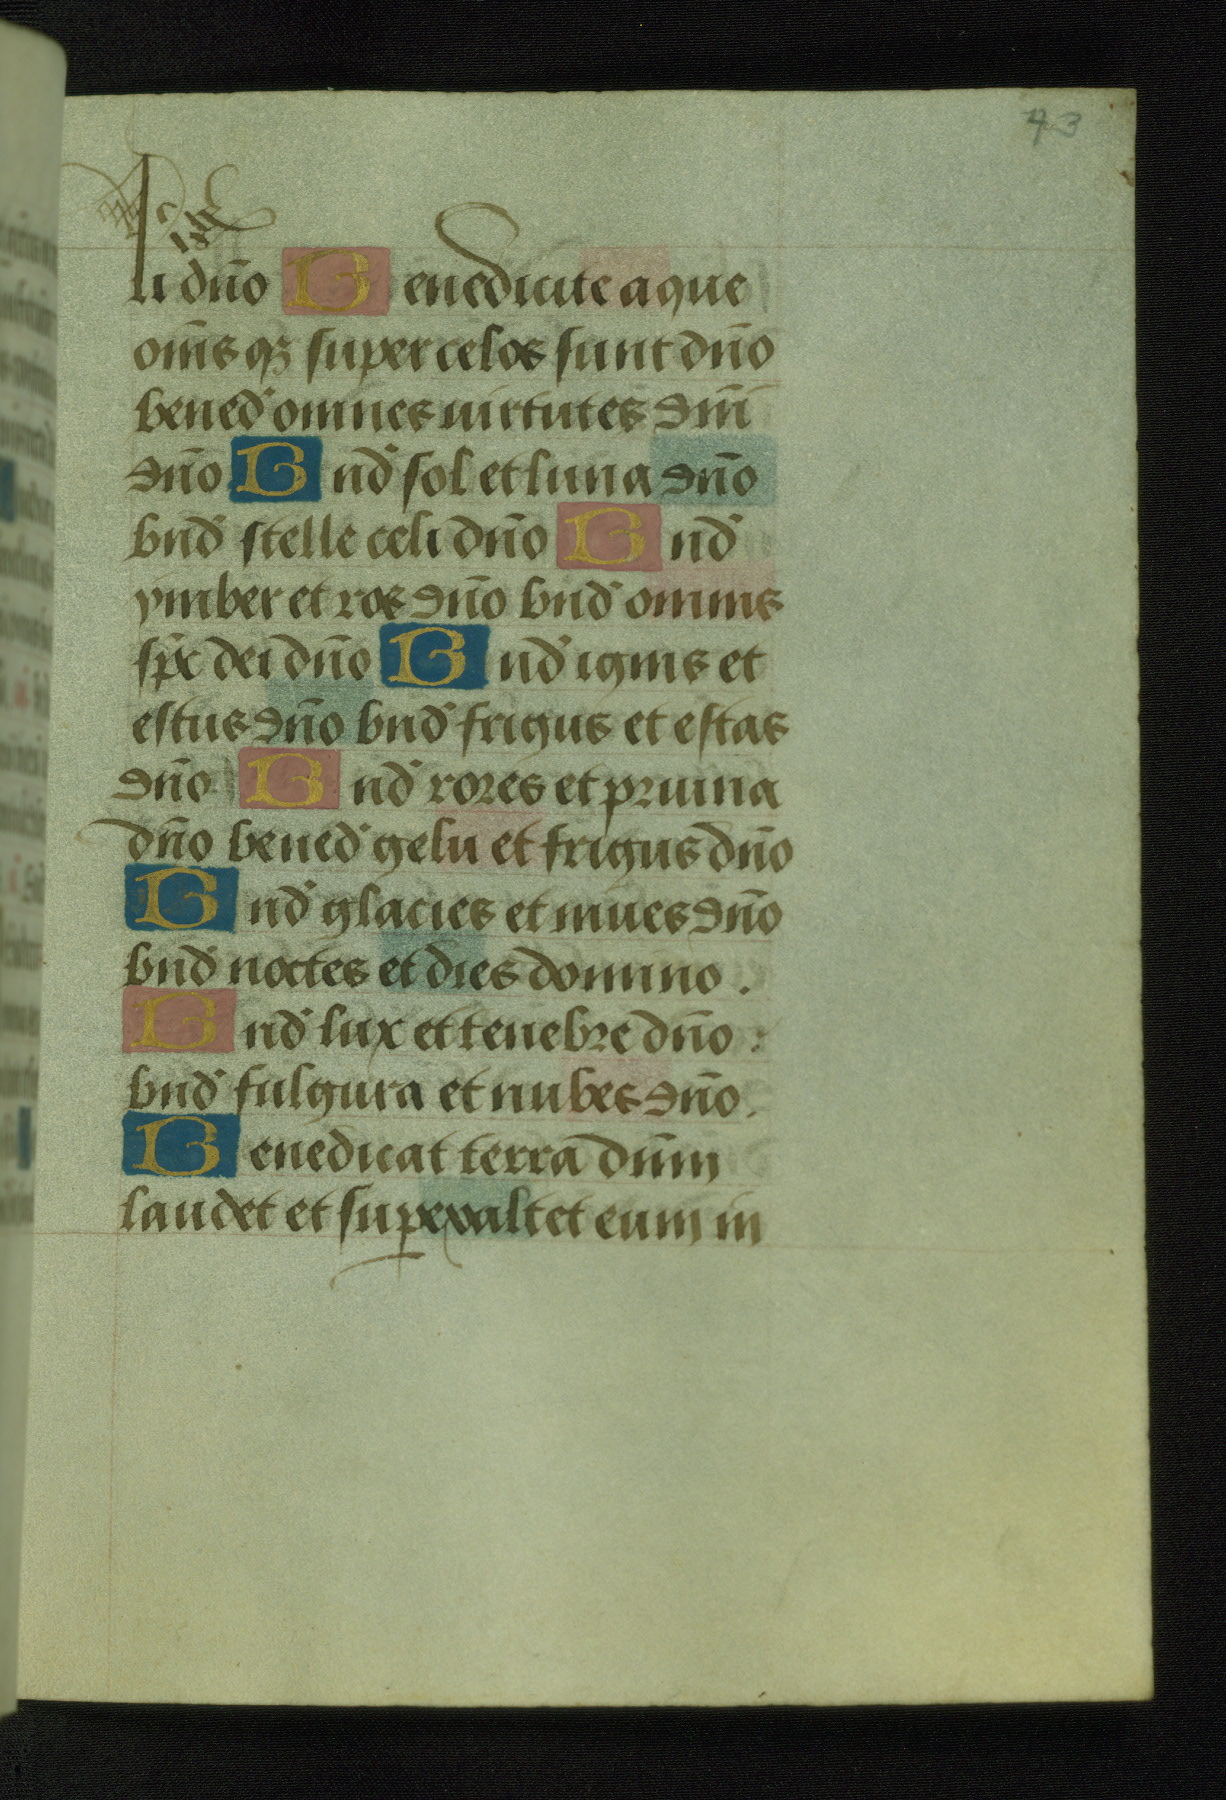 43
li dn̄o Benedicite aque
om̄s q3 super celos sunt dn̄o
bened' omnes uirtutes dn̄i
dn̄o Bnd' sol et luna dn̄o
bnd' stelle celi dn̄o Bnd'
ymber et ros dn̄o bnd' omnis
sp̄c dei dn̄o Bnd' ignis et
estus dn̄o bnd' frigus et estas
dn̄o Bnd' rores et pruina
dn̄o bened' gelu et frigus dn̄o
Bnd' glacies et niues dn̄o
bnd' noctes et dies domino .
Bnd' lux et tenebre dn̄o :
bnd' fulgura et nubes dn̄o .
Benedicat terra dn̄m
laudet et supexaltet eum in